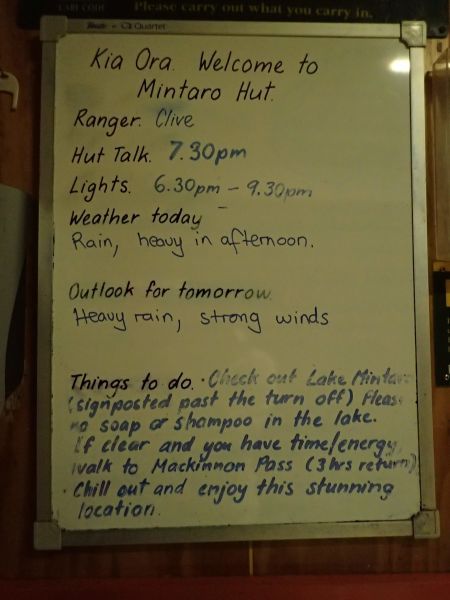 CARE CODE
Please carry out what you carry in.
Quartet
Kia Ora. Welcome to
Mintaro Hut.
Ranger. Clive
Hut Talk. 7.30pm
Lights. 6.30pm - 9.30pm
Weather today
Rain, heavy in afternoon.
Outlook for tomorrow.
Heavy rain, strong winds
Things to do. · Check out Lake Mintaro
(signposted past the turn off) Please
no soap or shampoo in the lake.
If clear and you have time/energy,
walk to Mackinnon Pass (3hrs return)
· Chill out and enjoy this stunning
location.